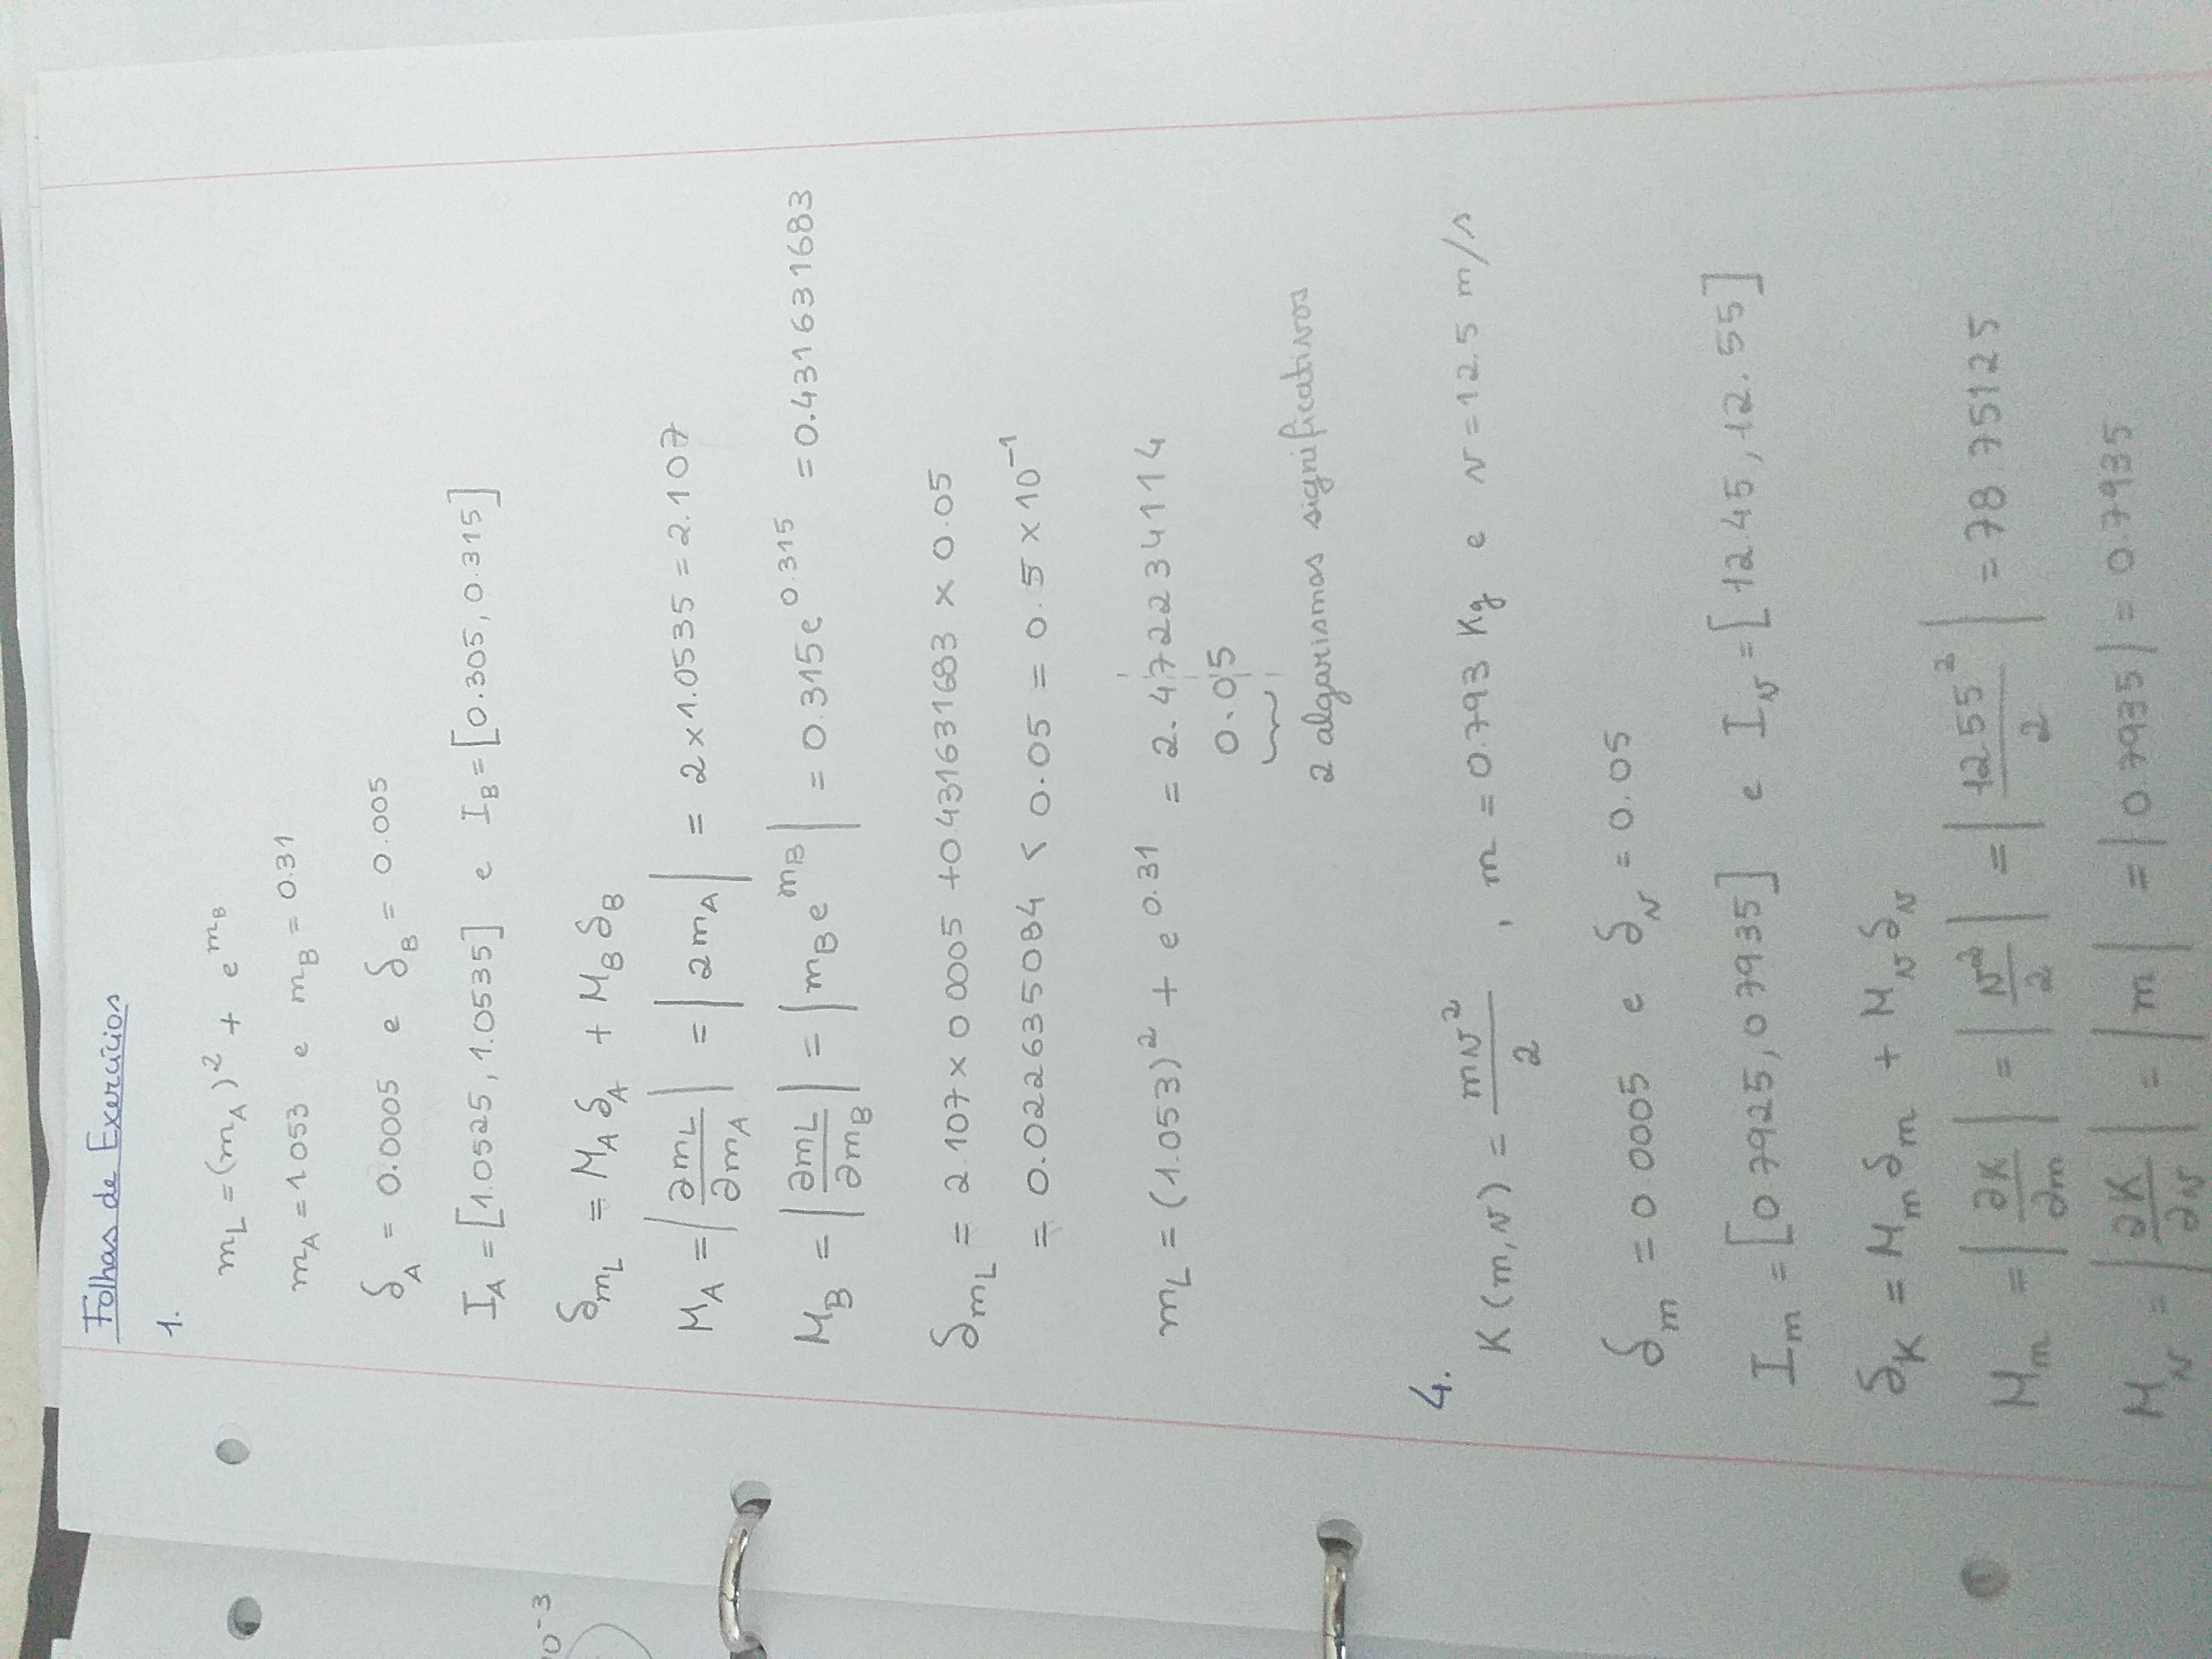 Folhas de Exercícios
1.
m_L = (m_A)^2 + e^{m_B}
m_A = 1.053 e m_B = 0.31
δ_A = 0.0005 e δ_B = 0.005
I_A = [1.0525, 1.0535] e I_B = [0.305, 0.315]
10^{-3}
δ_{m_L} = M_A δ_A + M_B δ_B
M_A = |∂m_L/∂m_A| = |2m_A| = 2×1.0535 = 2.107
M_B = |∂m_L/∂m_B| = |m_B e^{m_B}| = 0.315e^{0.315} = 0.431631683
δ_{m_L} = 2.107 × 0.0005 + 0.431631683 × 0.05
= 0.022635084 < 0.05 = 0.5 × 10^{-1}
m_L = (1.053)^2 + e^{0.31} = 2.472234114
0.05
2 algarismos significativos
4.
K(m,v) = mv^2/2 , m = 0.793 Kg e v = 12.5 m/s
δ_m = 0.0005 e δ_v = 0.05
I_m = [0.7925, 0.7935] e I_v = [12.45, 12.55]
δ_K = M_m δ_m + M_v δ_v
M_m = |∂K/∂m| = |v^2/2| = |12.55^2/2| = 78.75125
M_v = |∂K/∂v| = |m| = |0.7935| = 0.7935